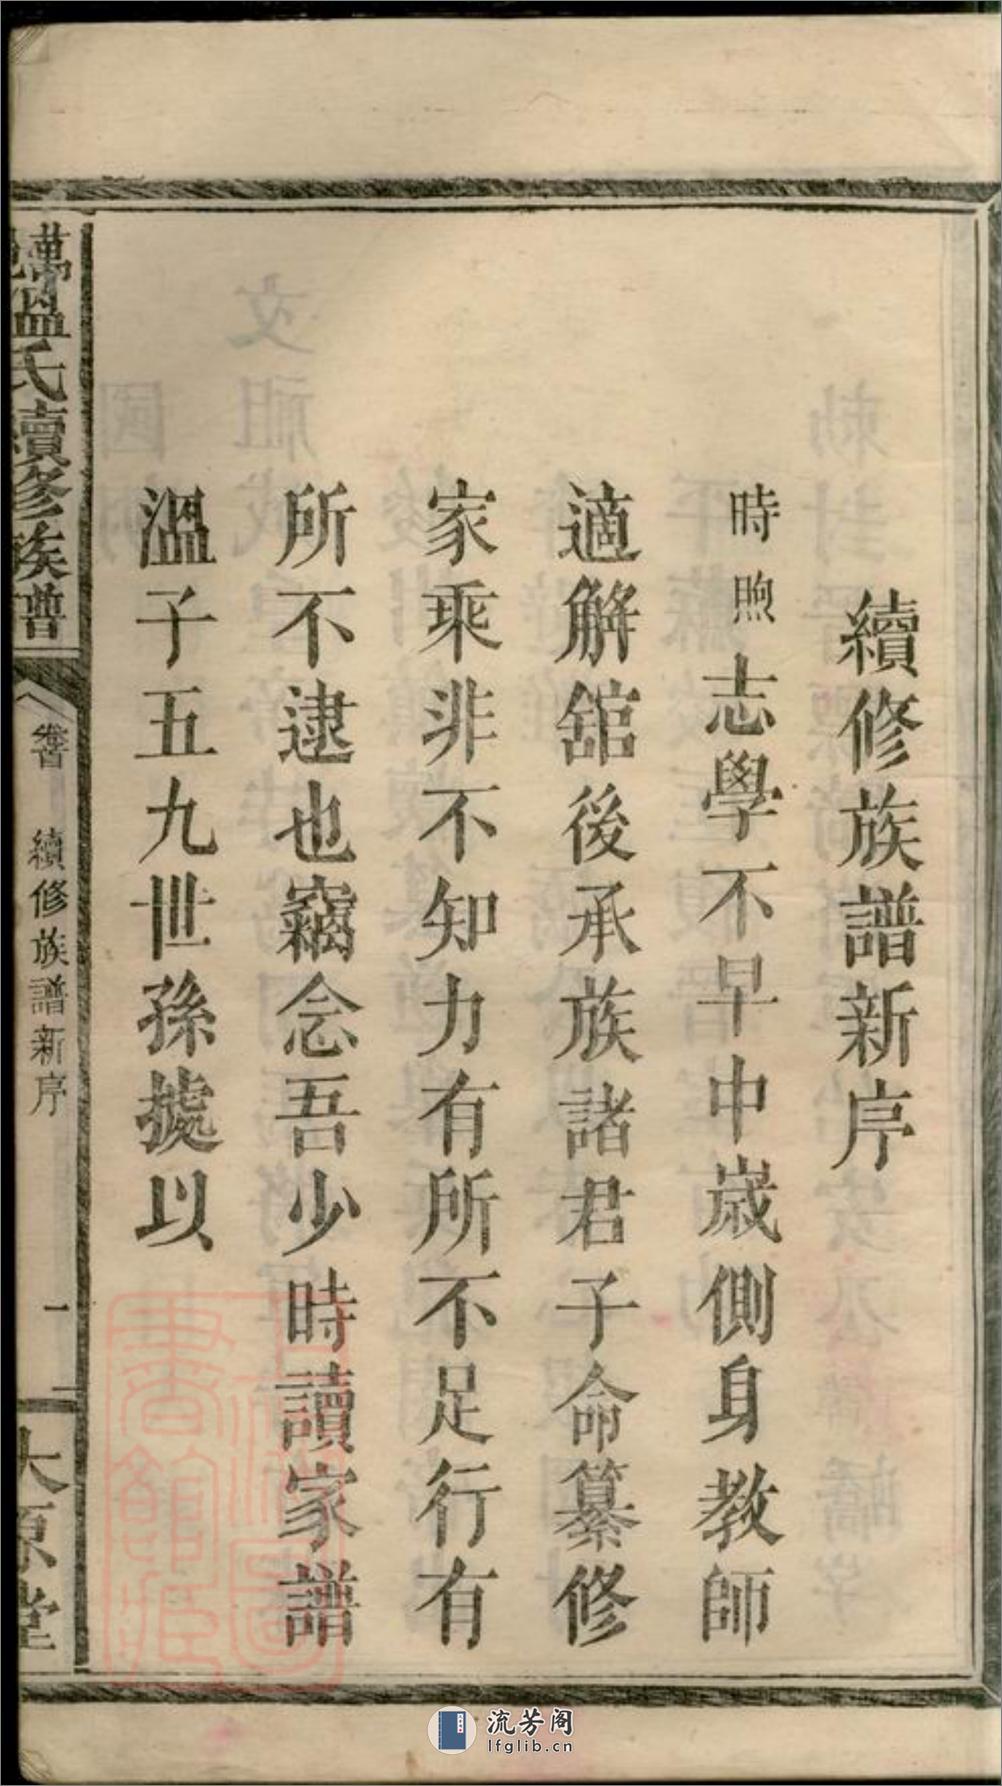 續修族譜新序
時煦志學不早中歲側身教師
適解舘後承族諸君子命纂修
家乘非不知力有所不足行有
所不逮也竊念吾少時讀家譜
溫子五九世孫㨿以
萬邑溫氏續修族譜
卷首 續修族譜新序
一
太原堂
流芳阁
lfglib.cn